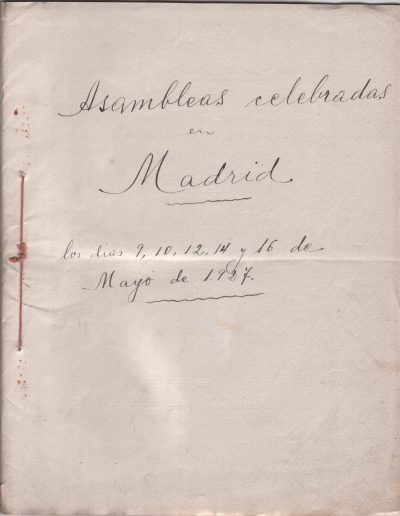 Asambleas celebradas
en
Madrid
los dias 9, 10, 12, 14 y 16 de
Mayo de 1.927.